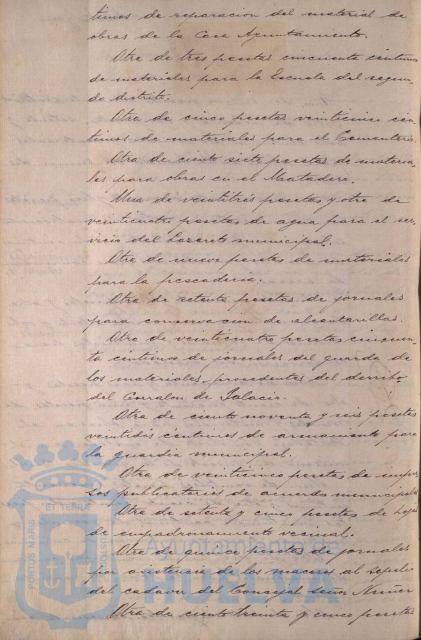 timos de reparacion del material de
obras de la Casa Ayuntamiento.
Otra de tres pesetas cincuenta centimos
de materiales para la Escuela del segun-
do distrito.
Otra de cinco pesetas veinticinco cén-
timos de materiales para el Cementerio.
Otra de ciento siete pesetas de materia-
les para obras en el Matadero.
Una de veintitres pesetas y otra de
veinticuatro pesetas de agua para el ser-
vicio del Lazareto municipal.
Otra de nueve pesetas de materiales
para la pescaderia.
Otra de setenta pesetas de jornales
para conservacion de alcantarillas.
Otra de veinticuatro pesetas cincuen-
ta céntimos de jornales del guarda de
los materiales procedentes del derribo
del Corralon de Palacio.
Otra de ciento noventa y seis pesetas
veintidos céntimos de armamento para
la guardia municipal.
Otra de veinticinco pesetas de impre-
sos publicatorios de acuerdo municipal
Otra de setenta y cinco pesetas de hojas
de empadronamiento vecinal.
Otra de quince pesetas de jornales
por asistencia de los maceros al sepelio
del cadaver del Concejal señor Muñoz
Otra de ciento treinta y cinco pesetas
PORTUS MARIS
ET TERRAE
Ayuntamiento de
HUELVA